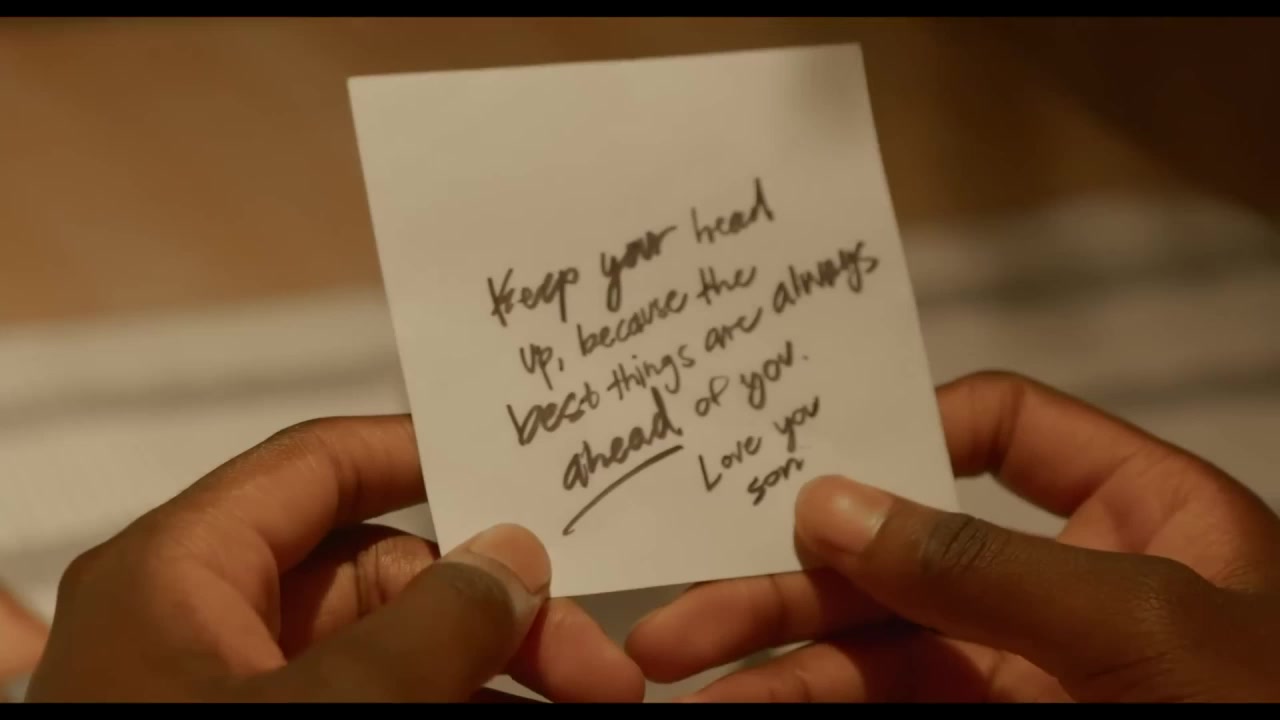 Keep your head
up, because the
best things are always
ahead of you.
Love you
son